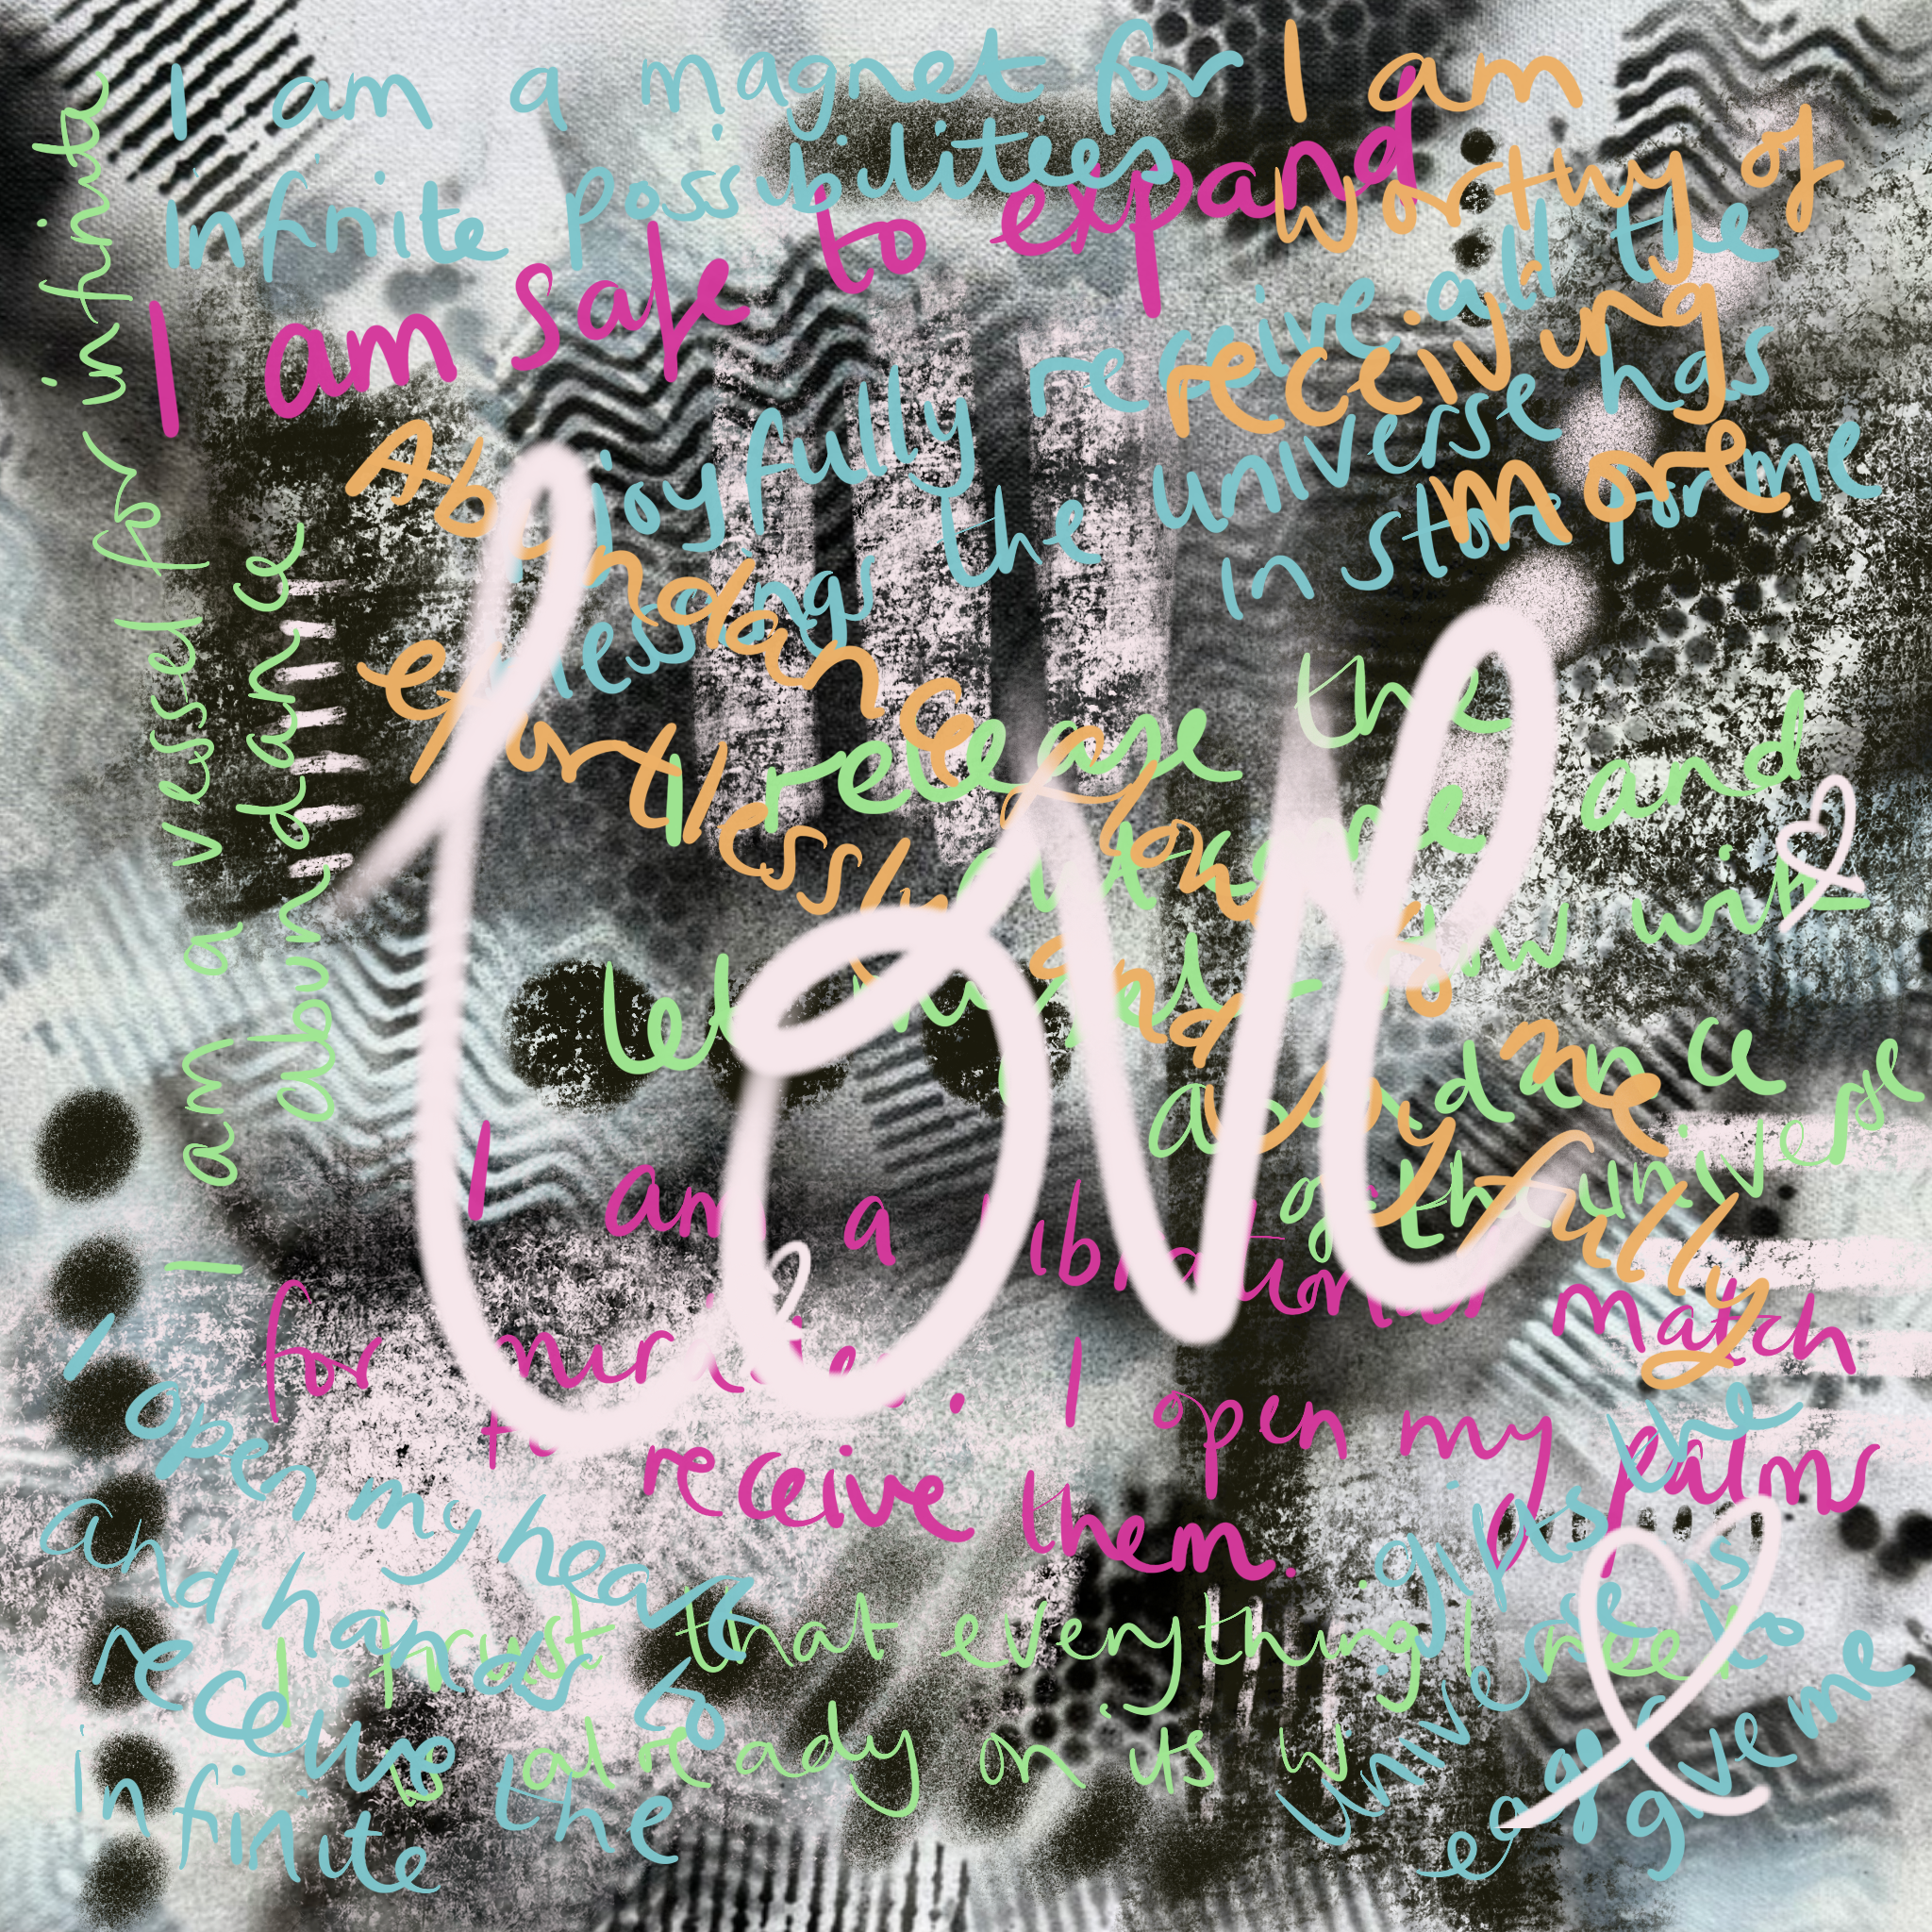 I am a magnet for
infinite possibilities
I am safe to expand
I am
worthy of
receiving
more
joyfully receive all the
blessings the universe has
in store for me
Abundance
effortlessly flows to me
and joyfully
I release the
outcome and
let myself flow with
abundance
of the universe
love
I am a vessel for infinite
abundance
I am a vibrational match
for miracles. I open my palms
to receive them.
I open my heart
and hands to
receive the
infinite
gifts the
universe is
eager to
give me
I trust that everything I need
is already on its